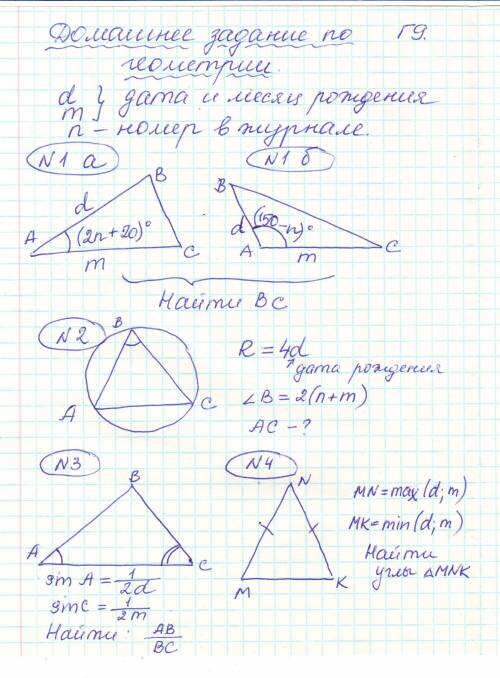 Домашнее задание по Г9.
геометрии.
d } дата и месяц рождения
m
n – номер в журнале.
N1 а
N1 б
B
d
(2n+20)°
A
C
m
B
d
(150-n)°
A
C
m
Найти BC
N2
B
A
C
R = 4d
дата рождения
∠B = 2(n+m)
AC – ?
N3
B
A
C
sin A = 1/2d
sin C = 1/2m
Найти: AB/BC
N4
N
M
K
MN = max(d; m)
MK = min(d; m)
Найти
углы △MNK